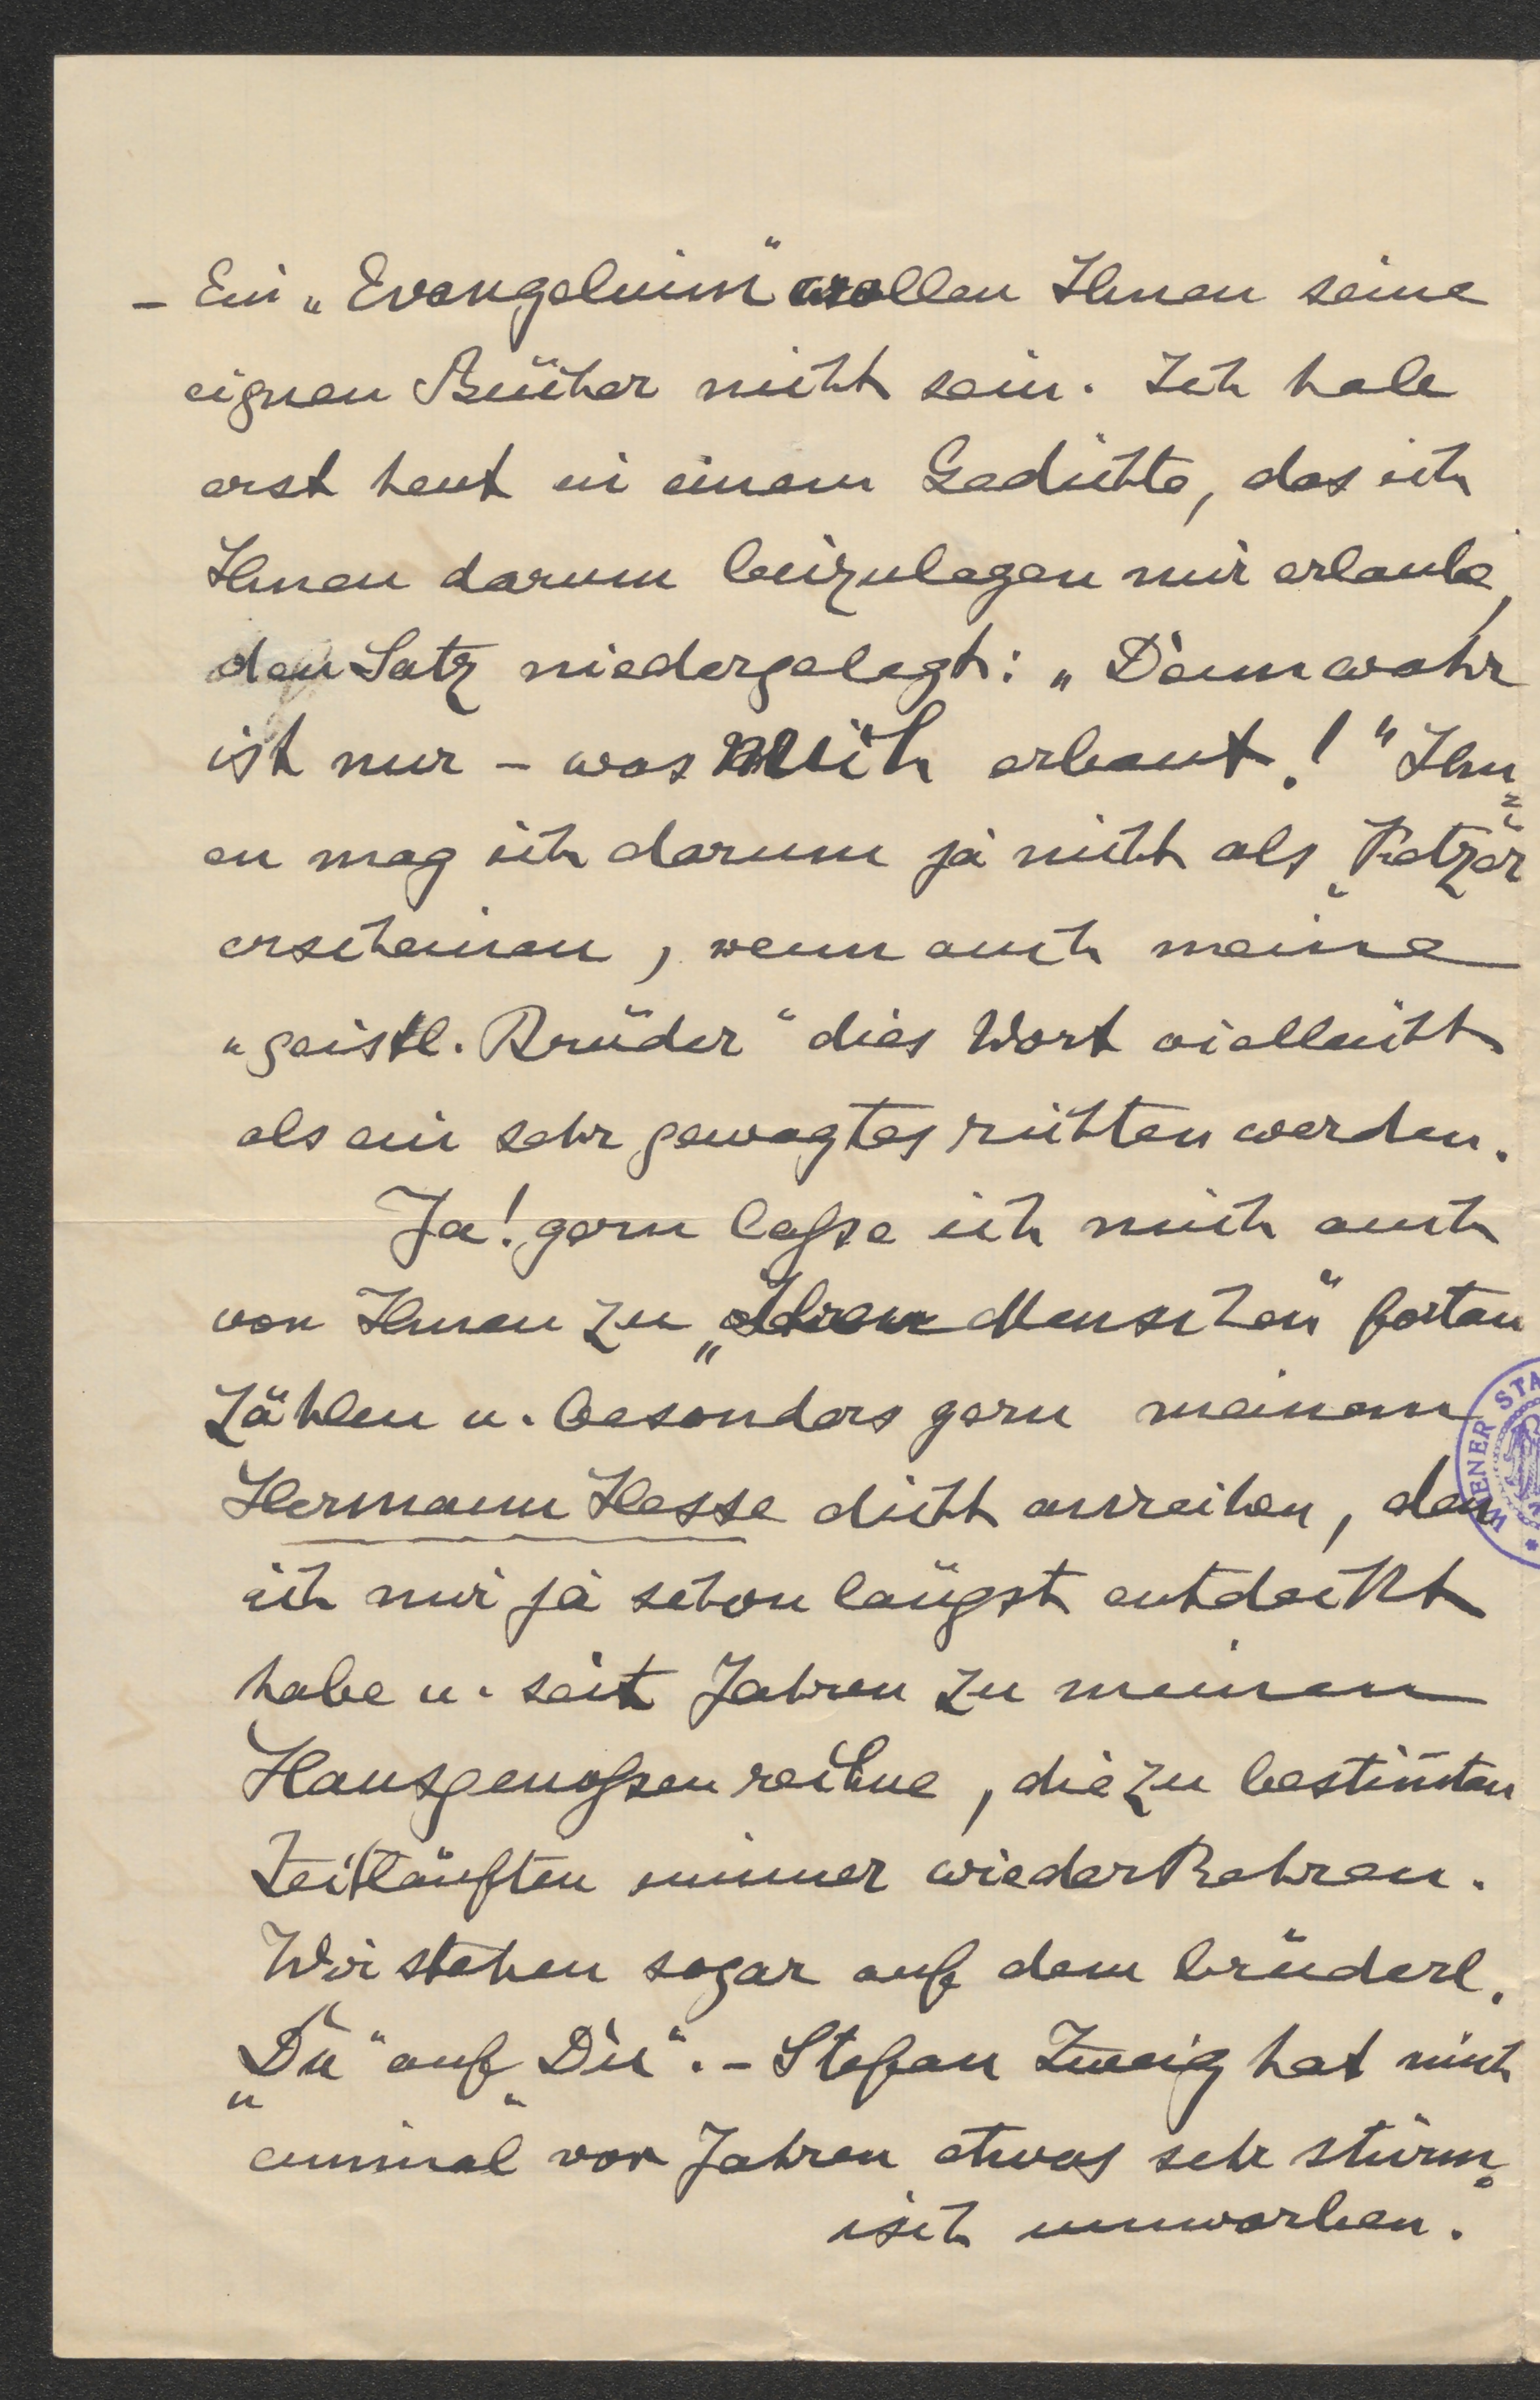 – Ein „Evangelium“ wollen Ihnen seine
eignen Bücher nicht sein. Ich habe
erst heut in einem Gedichte, das ich
Ihnen darum beizulegen mir erlaube,
den Satz niedergelegt: „Denn wahr
ist nur – was mich erbaut!“ Ihn=
en mag ich darum ja nicht als „Ketzer“
erscheinen, wenn auch meine
„geistl. Brüder“ dies Wort vielleicht
als ein sehr gewagtes richten werden.
Ja! gern laſse ich mich auch
von Ihnen zu „Ihren Menschen“ fortan
zählen u. besonders gern meinem
Hermann Hesse dicht anreihen, den
ich mir ja schon längst entdeckt
habe u. seit Jahren zu meinen
Hausgenoſsen rechne, die zu bestim̄ten
Zeitläuften immer wiederkehren.
Wir stehen sogar auf dem brüderl.
„Du“ auf „Du“. – Stefan Zweig hat mich
einmal vor Jahren etwas sehr stürm=
isch umworben.
WIENER STA